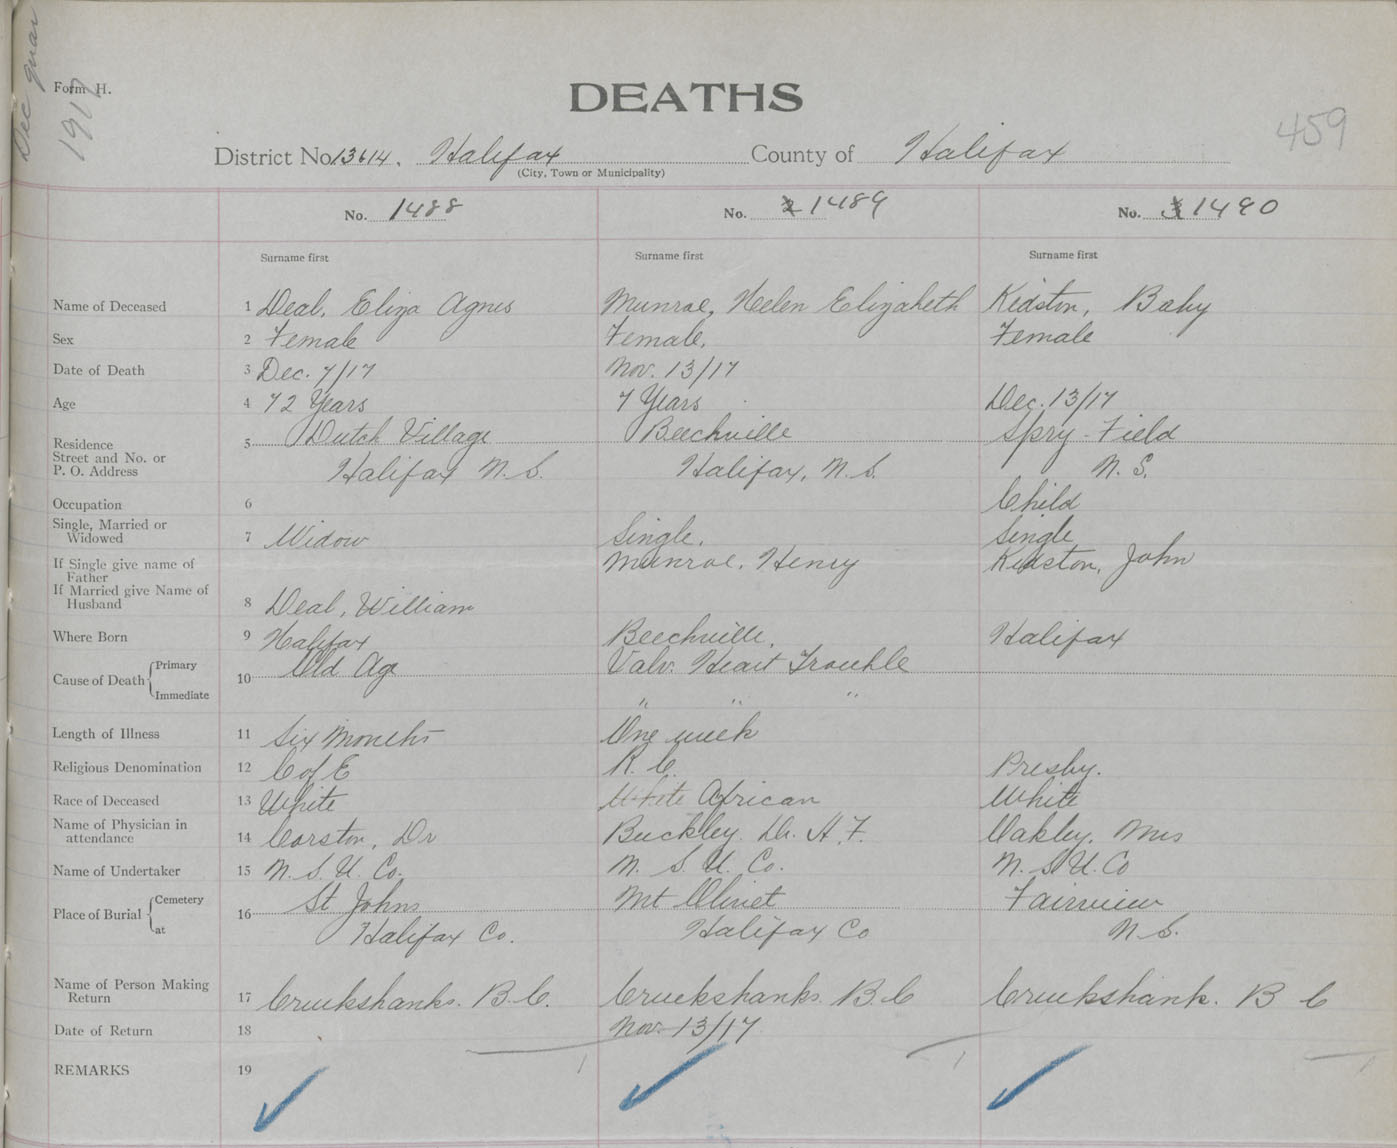 Dec quar
1917
Form H.
DEATHS
459
District No. 13614. Halifax County of Halifax
(City, Town or Municipality)
No. 1488 No. 2 1489 No. 3 1490
Surname first Surname first Surname first
Name of Deceased 1 Deal, Eliza Agnes Munroe, Helen Elizabeth Kidston, Baby
Sex 2 Female Female. Female
Date of Death 3 Dec. 7/17 Nov. 13/17
Age 4 72 Years 7 Years Dec. 13/17
Residence 5 Dutch Village Beechville Spry-Field
Street and No. or
P. O. Address Halifax N. S. Halifax, N. S. N. S.
Occupation 6 Child
Single, Married or
Widowed 7 Widow Single. Single
If Single give name of
Father Munroe, Henry Kidston, John
If Married give Name of
Husband 8 Deal, William
Where Born 9 Halifax Beechville. Halifax
Cause of Death Primary 10 Old Age Valv. Heart Trouble
Immediate " " "
Length of Illness 11 Six Months One week
Religious Denomination 12 C of E R. C. Presby.
Race of Deceased 13 White White African White
Name of Physician in
attendance 14 Corston, Dr Buckley. Dr. A. F. Oakley. Mrs
Name of Undertaker 15 N. S. U. Co. N. S. U. Co. N. S U. Co
Place of Burial Cemetery 16 St Johns Mt Olivet Fairview
at Halifax Co. Halifax Co N. S.
Name of Person Making
Return 17 Cruikshanks. B. C. Cruikshanks. B. C Cruikshank. B C
Date of Return 18 Nov. 13/17
REMARKS 19